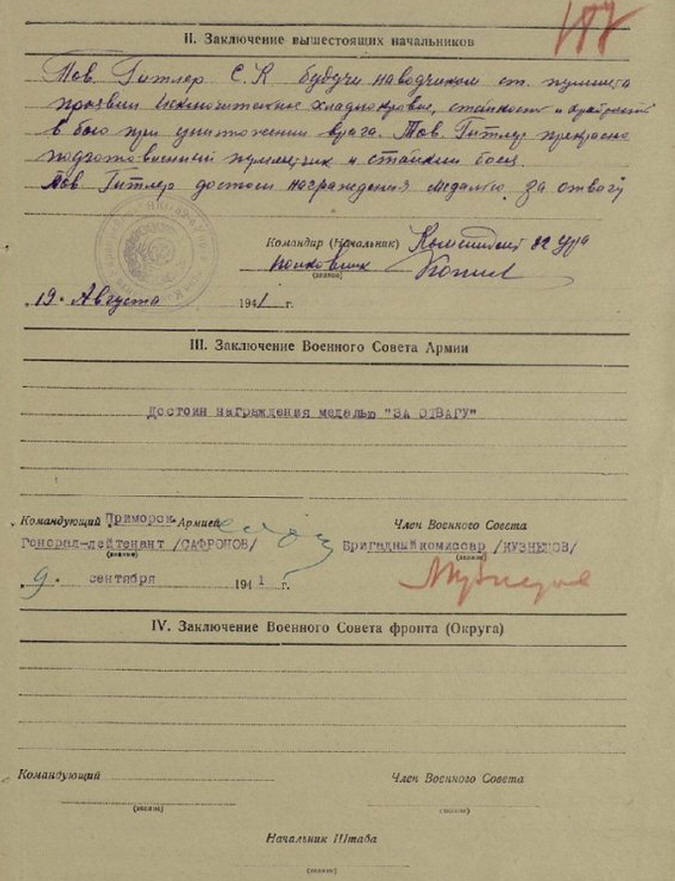 197
II. Заключение вышестоящих начальников
Тов. Гитлер С.К будучи наводчиком ст. пулемета
проявил исключительное хладнокровие, стойкость и храбрость
в бою при уничтожении врага. Тов. Гитлер прекрасно
подготовленный пулеметчик и стойкий боец.
Тов. Гитлер достоин награждения медалью за отвагу
Командир (Начальник) Комендант 82 ура
полковник
(звание)
19. Августа 1941 г.
III. Заключение Военного Совета Армии
Достоин награждения медалью "ЗА ОТВАГУ"
Командующий Приморск. Армией
Член Военного Совета
Генерал-лейтенант /САФРОНОВ/
Бригадный комиссар /КУЗНЕЦОВ/
(звание) (звание)
9. сентября 1941 г.
IV. Заключение Военного Совета фронта (Округа)
Командующий
Член Военного Совета
(звание) (звание)
Начальник Штаба
(звание)